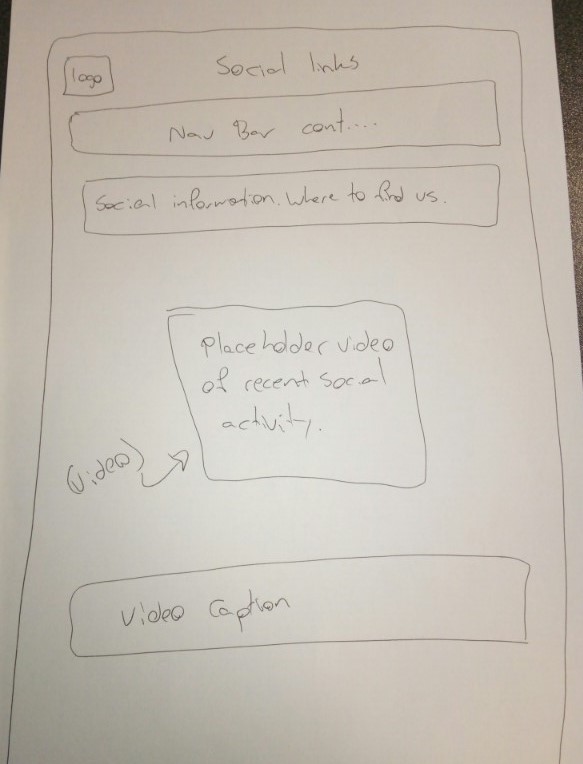 logo
Social links
Nav Bar cont....
Social information. Where to find us.
Placeholder video
of recent Social
activity.
(video)
Video Caption